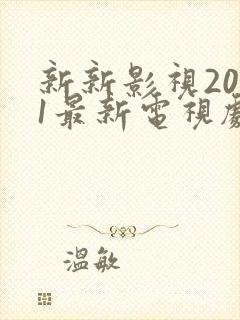 新新影視20
1最新電視劇
溫敏